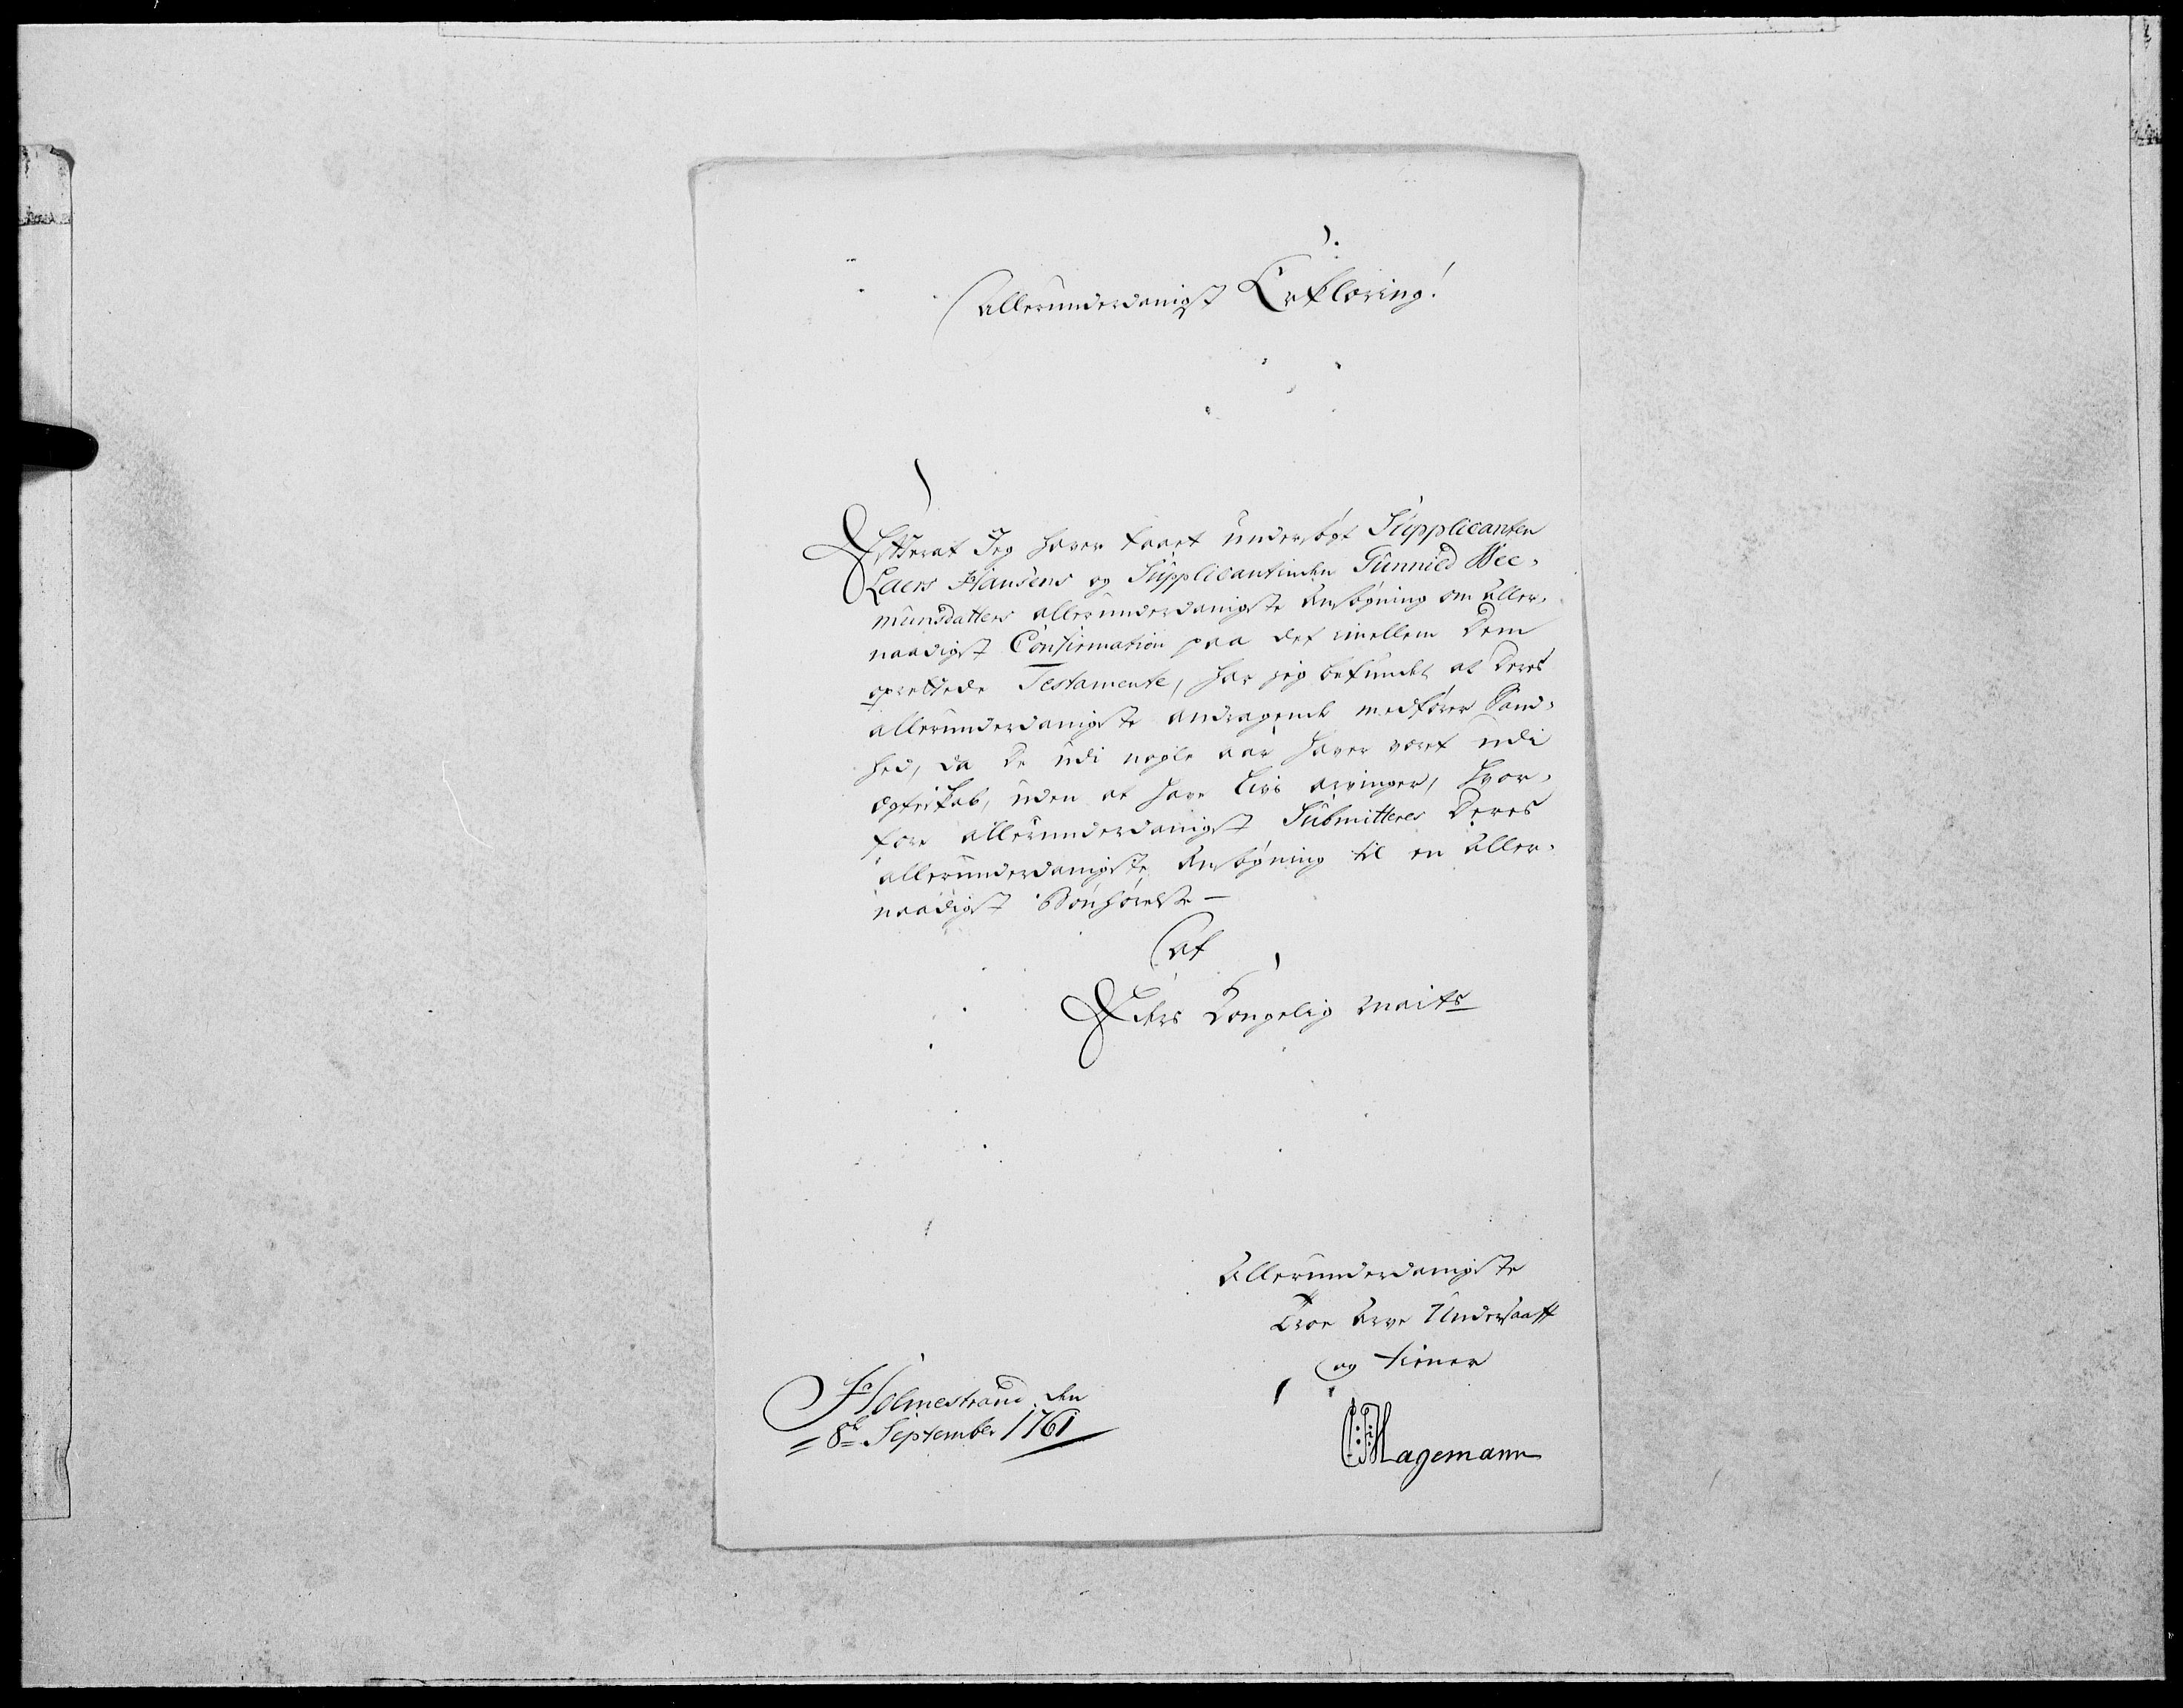 Allerunderdanigst Erklæring!
Efterat Jeg haver faaet undersögt Supplicanten
Laers Hansens og Supplicantinden Gunnild Hee-
munsdatters allerunderdanigste Ansögning om Aller-
naadigst Confirmation paa det imellem Dem
oprettede Testamente, har jeg befundet at Deres
allerunderdanigste andragende medförer Sand-
hed, da De udi nogle aar haver været udi
ægteskab, uden at have Livs arvinger, hvor-
fore allerunderdanigst Submitteres Deres
allerunderdanigste Ansögning til en Aller-
naadigst Bönhörelse –
Af
Eders Kongelig Maits
Allerunderdanigste
Troe Arve Undersaatt
og tiener
Holmestrand den
8de September 1761
Hagemann